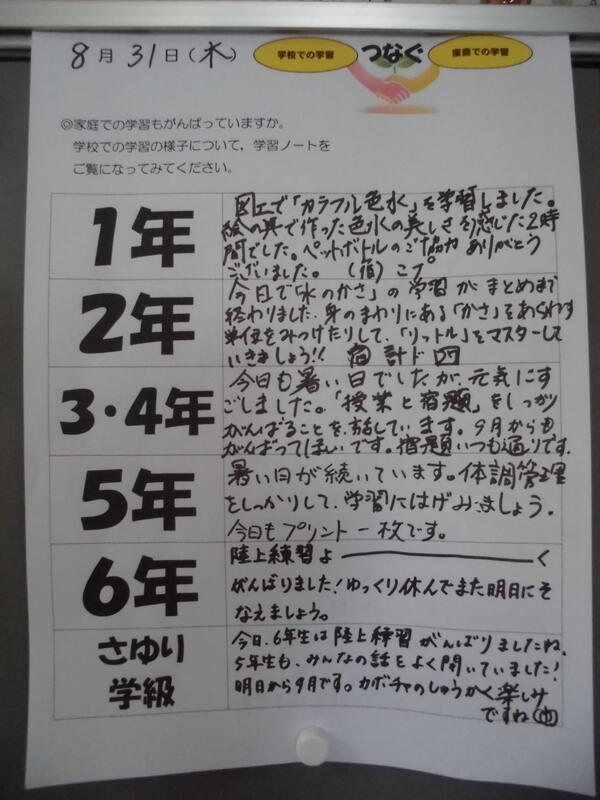 8月31日(木)
学校での学習
つなぐ
家庭での学習
◎家庭での学習もがんばっていますか。
学校での学習の様子について，学習ノートを
ご覧になってみてください。
1年
図工で「カラフル色水」を学習しました。
絵の具で作った色水の美しさを感じた2時
間でした。ペットボトルのご協力ありがとう
ございました。 (宿)こプ。
2年
今日で「水のかさ」の学習がまとめまで
終わりました。身のまわりにある「かさ」をあらわす
単位をみつけたりして、「リットル」をマスターして
いきましょう!! 宿 計ド四
3・4年
今日も暑い日でしたが、元気にす
ごしました。「授業と宿題」をしっかり
がんばることを、話しています。9月からも
がんばってほしいです。宿題いつも通りです。
5年
暑い日が続いています。体調管理
をしっかりして、学習にはげみましょう。
今日もプリント一枚です。
6年
陸上練習よ――く
がんばりました!ゆっくり休んでまた明日にそ
なえましょう。
さゆり
学級
今日、6年生は陸上練習がんばりましたね。
5年生も、みんなの話をよく聞いていました!
明日から9月です。カボチャのしゅうかく楽しみ
ですね